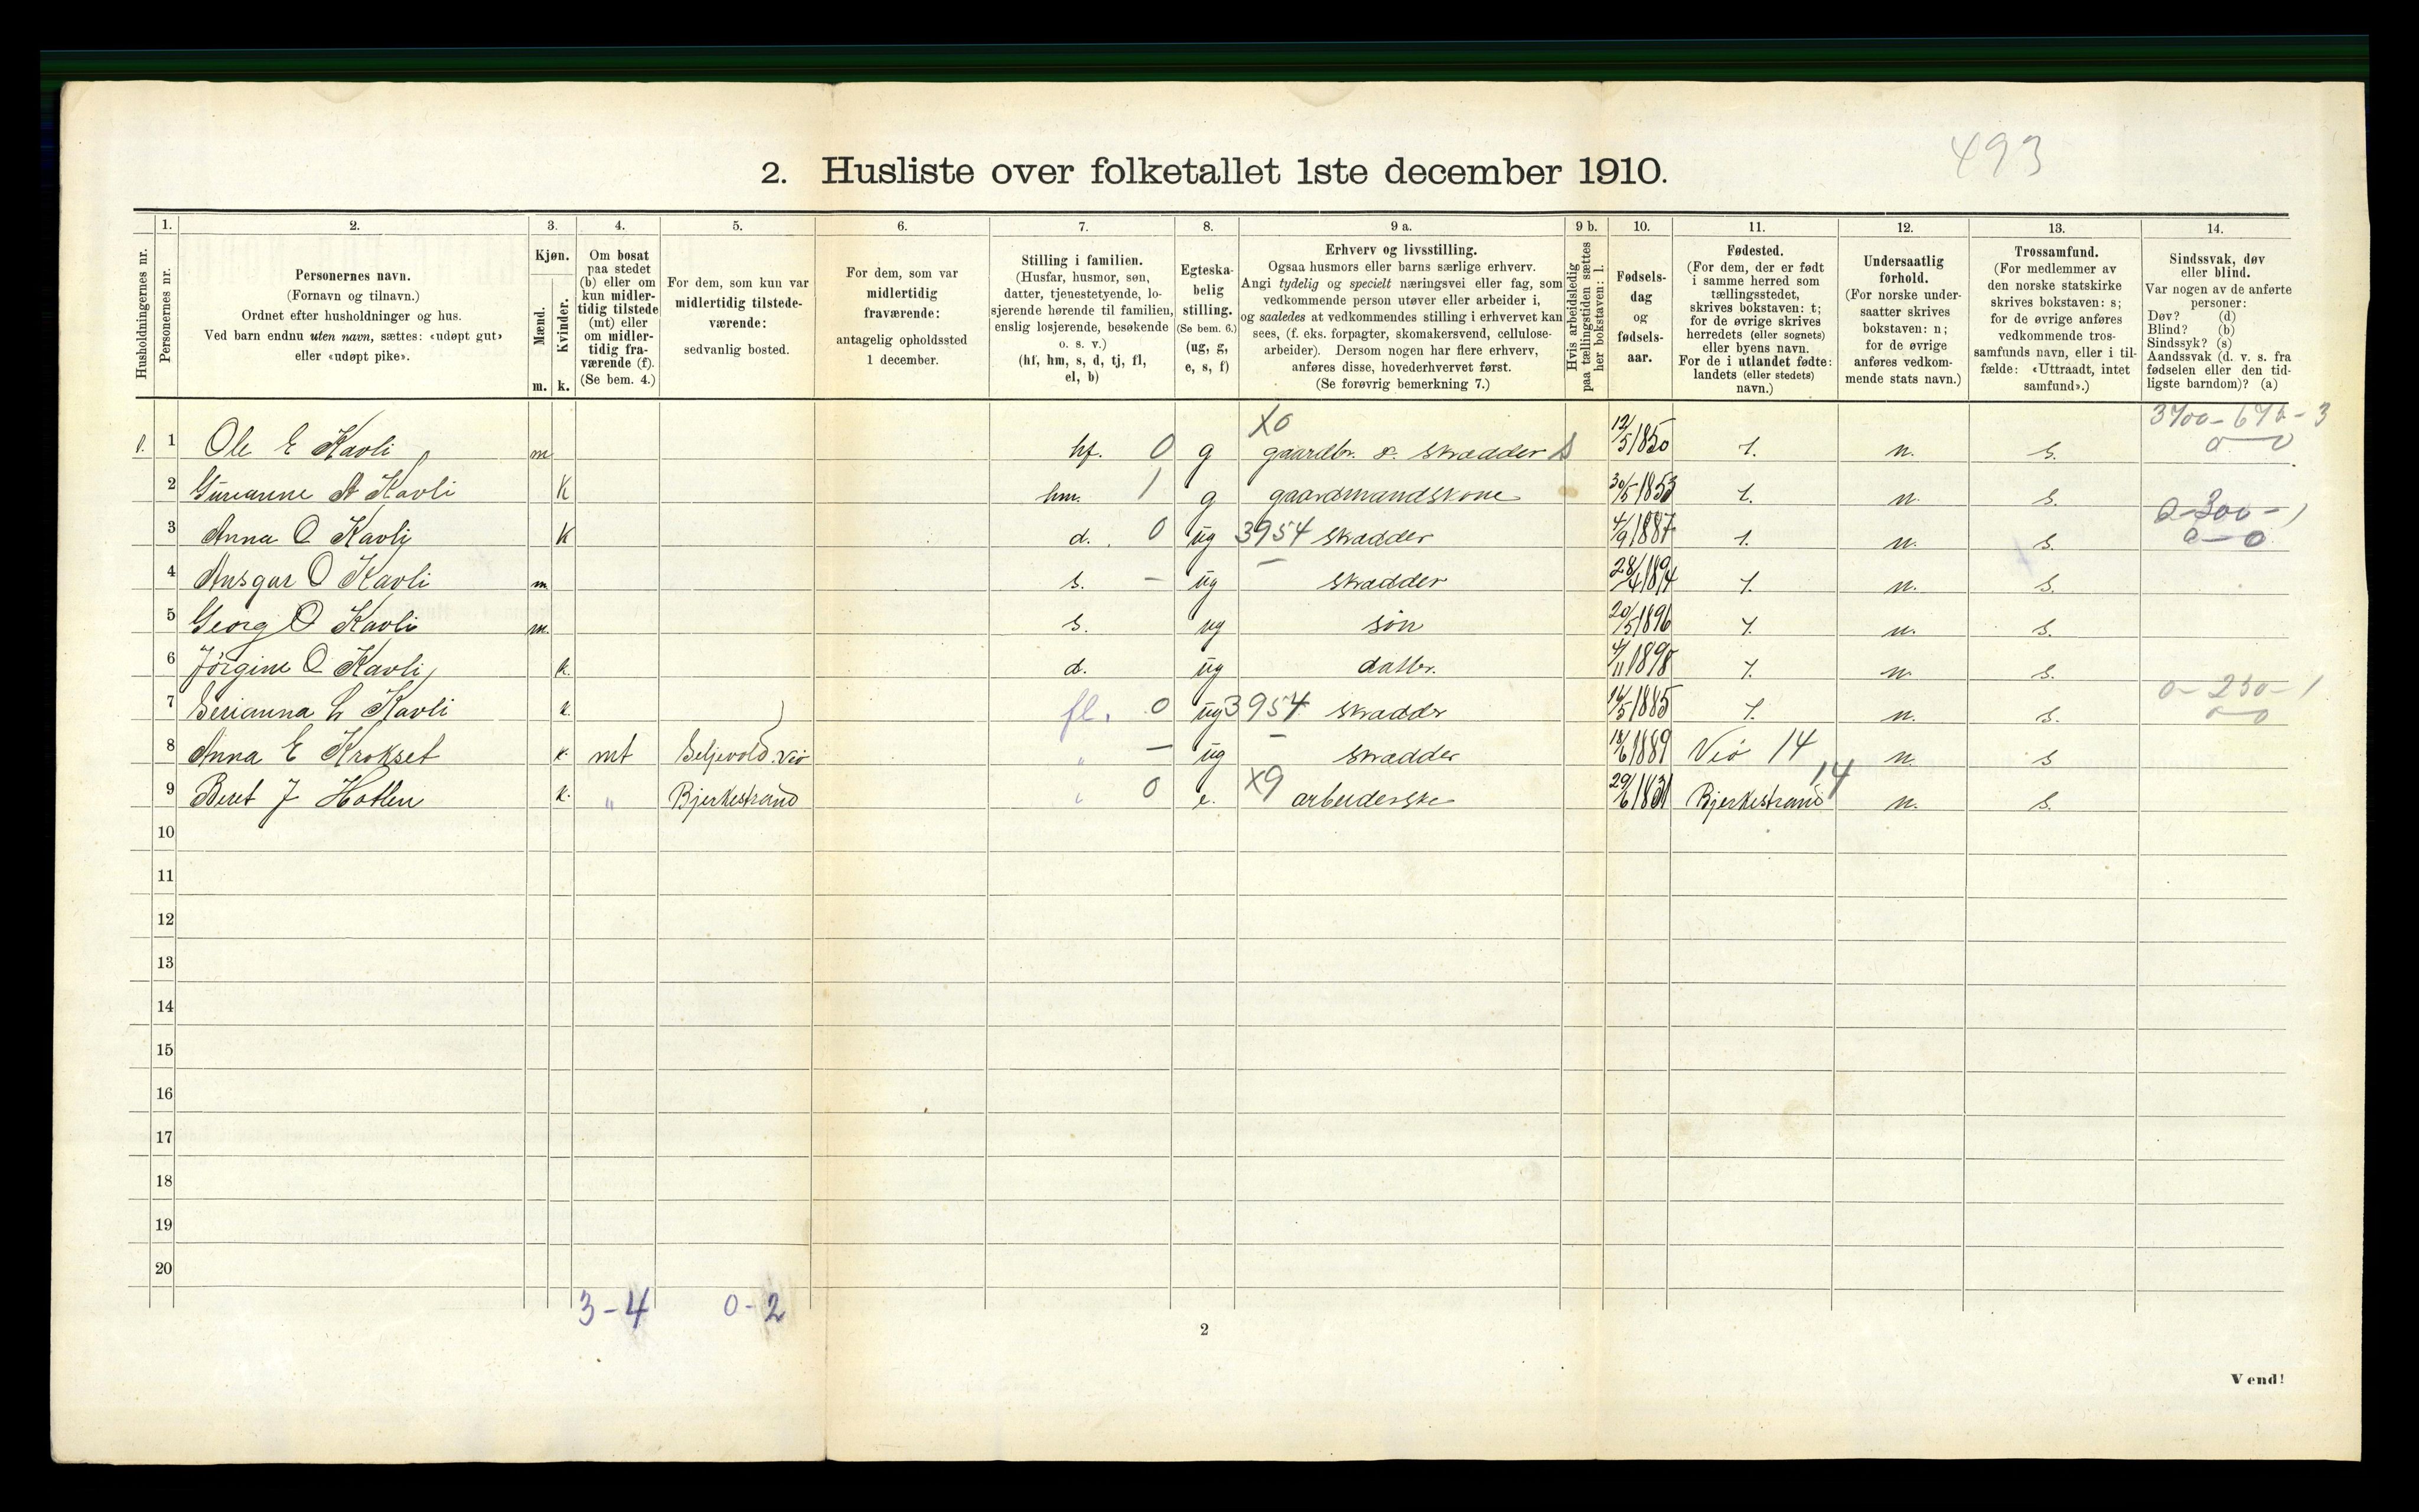 493
2. Husliste over folketallet 1ste december 1910.
Husholdningernes nr.
1. Personernes nr.
2. Personernes navn. (Fornavn og tilnavn.) Ordnet efter husholdninger og hus. Ved barn endnu uten navn, sættes: «udøpt gut» eller «udøpt pike».
3. Kjøn. Mænd. m. Kvinder. k.
4. Om bosat paa stedet (b) eller om kun midlertidig tilstede (mt) eller om midlertidig fraværende (f). (Se bem. 4.)
5. For dem, som kun var midlertidig tilstedeværende: sedvanlig bosted.
6. For dem, som var midlertidig fraværende: antagelig opholdssted 1 december.
7. Stilling i familien. (Husfar, husmor, søn, datter, tjenestetyende, losjerende hørende til familien, enslig losjerende, besøkende o. s. v.) (hf, hm, s, d, tj, fl, el, b)
8. Egteskabelig stilling. (Se bem. 6.) (ug, g, e, s, f)
9 a. Erhverv og livsstilling. Ogsaa husmors eller barns særlige erhverv. Angi tydelig og specielt næringsvei eller fag, som vedkommende person utøver eller arbeider i, og saaledes at vedkommendes stilling i erhvervet kan sees, (f. eks. forpagter, skomakersvend, cellulosearbeider). Dersom nogen har flere erhverv, anføres disse, hovederhvervet først. (Se forøvrig bemerkning 7.)
9 b. Hvis arbeidsledig paa tællingstiden sættes her bokstaven: l.
10. Fødselsdag og fødselsaar.
11. Fødested. (For dem, der er født i samme herred som tællingsstedet, skrives bokstaven: t; for de øvrige skrives herredets (eller sognets) eller byens navn. For de i utlandet fødte: landets (eller stedets) navn.)
12. Undersaatlig forhold. (For norske undersaatter skrives bokstaven: n; for de øvrige anføres vedkommende stats navn.)
13. Trossamfund. (For medlemmer av den norske statskirke skrives bokstaven: s; for de øvrige anføres vedkommende trossamfunds navn, eller i tilfælde: «Uttraadt, intet samfund».)
14. Sindssvak, døv eller blind. Var nogen av de anførte personer: Døv? (d) Blind? (b) Sindssyk? (s) Aandssvak (d. v. s. fra fødselen eller den tidligste barndom)? (a)
1 Ole E Kavli m hf. 0 g X0 gaardbr. & skrædder 12/5 1850 t. n. s.
2 Gurianne A Kavli K hm. 1 g gaardmandskone 30/5 1853 t. n. s.
3 Anna O Kavli K d. 0 ug 3954 skrædder 4/9 1887 t. n. s. 0-300-1 0-0
4 Ansgar O Kavli m s. - ug skrædder 28/4 1894 t. n. s.
5 Georg O Kavli m. s. ug søn 20/5 1896 t. n. s.
6 Jörgine O Kavli k. d. ug datter. 4/11 1898 t. n. s.
7 Kavli k. fl. 0 ug 3954 skrædder 1885 t. n. s. 0-250-1 0-0
8 Anna E Krokset k. mt Seljevold Veö " - ug skrædder 18/6 1889 Veö 14 n. s
9 Beret J Hatlen k. " Bjerkestrand " 0 e. X9 arbeiderske 29/6 1831 Bjerkestrand 14 n. s.
10
11
12
13
14
15
16
17
18
19
20
3-4 0-2
2
Vend!